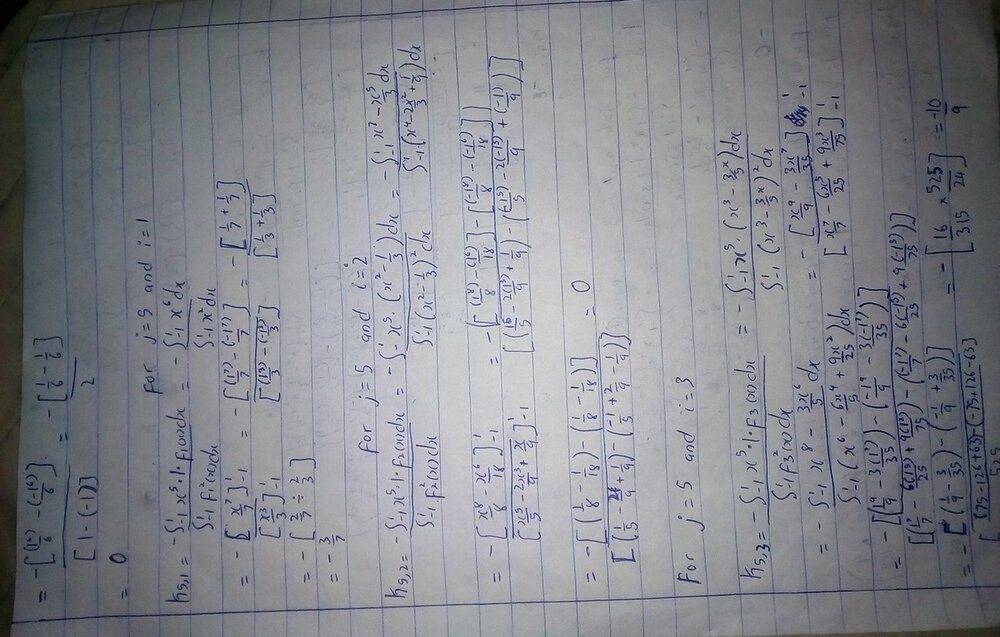 = -[(1⁶)/6 - (-1⁶)/6] / [1-(-1)] = -[1/6 - 1/6] / 2
= 0
For j=5 and i=1
K5,1 = -∫₋₁¹ x⁵·1·f₁(x)dx / ∫₋₁¹ f₁²(x)dx = -∫₋₁¹ x⁶dx / ∫₋₁¹ x²dx
= -[x⁷/7]₋₁¹ / [x³/3]₋₁¹ = -[(1⁷)/7 - (-1⁷)/7] / [(1³)/3 - (-1³)/3] = -[1/7 + 1/7] / [1/3 + 1/3]
= -[2/7 ÷ 2/3]
= -3/7
For j=5 and i=2
K5,2 = -∫₋₁¹ x⁵·1·f₂(x)dx / ∫₋₁¹ f₂²(x)dx = -∫₋₁¹ x⁵·(x² - 1/3)dx / ∫₋₁¹ (x² - 1/3)²dx = -∫₋₁¹ x⁷ - x⁵/3 dx / ∫₋₁¹ (x⁴ - 2x²/3 + 1/9)dx
= -[x⁸/8 - x⁶/18]₋₁¹ / [x⁵/5 - 2x³/9 + x/9]₋₁¹ = -[[(1⁸)/8 - (1⁶)/18] - [(-1⁸)/8 - (-1⁶)/18]] / [(1⁵/5 - 2(1³)/9 + 1/9) - ((-1⁵)/5 - 2(-1³)/9 + (-1)/9)]
= -[(1/8 - 1/18) - (1/8 - 1/18)] / [(1/5 - 2/9 + 1/9) - (-1/5 + 2/9 - 1/9)] = 0
For j=5 and i=3
K5,3 = -∫₋₁¹ x⁵·1·f₃(x)dx / ∫₋₁¹ f₃²(x)dx = -∫₋₁¹ x⁵·(x³ - 3x/5)dx / ∫₋₁¹ (x³ - 3/5 x)²dx
= -∫₋₁¹ x⁸ - 3x⁶/5 dx / ∫₋₁¹ (x⁶ - 6x⁴/5 + 9x²/25)dx = -[x⁹/9 - 3x⁷/35]₋₁¹ / [x⁷/7 - 6x⁵/25 + 9x³/75]₋₁¹
= -[(1⁹/9 - 3(1⁷)/35) - (-1⁹/9 - 3(-1⁷)/35)] / [(1⁷/7 - 6(1⁵)/25 + 9(1³)/75) - ((-1⁷)/7 - 6(-1⁵)/25 + 9(-1³)/75)]
= -[(1/9 - 3/35) - (-1/9 + 3/35)] / [(75-126+63)-(-75+126-63) = -[16/315 × 525/24] = -10/9